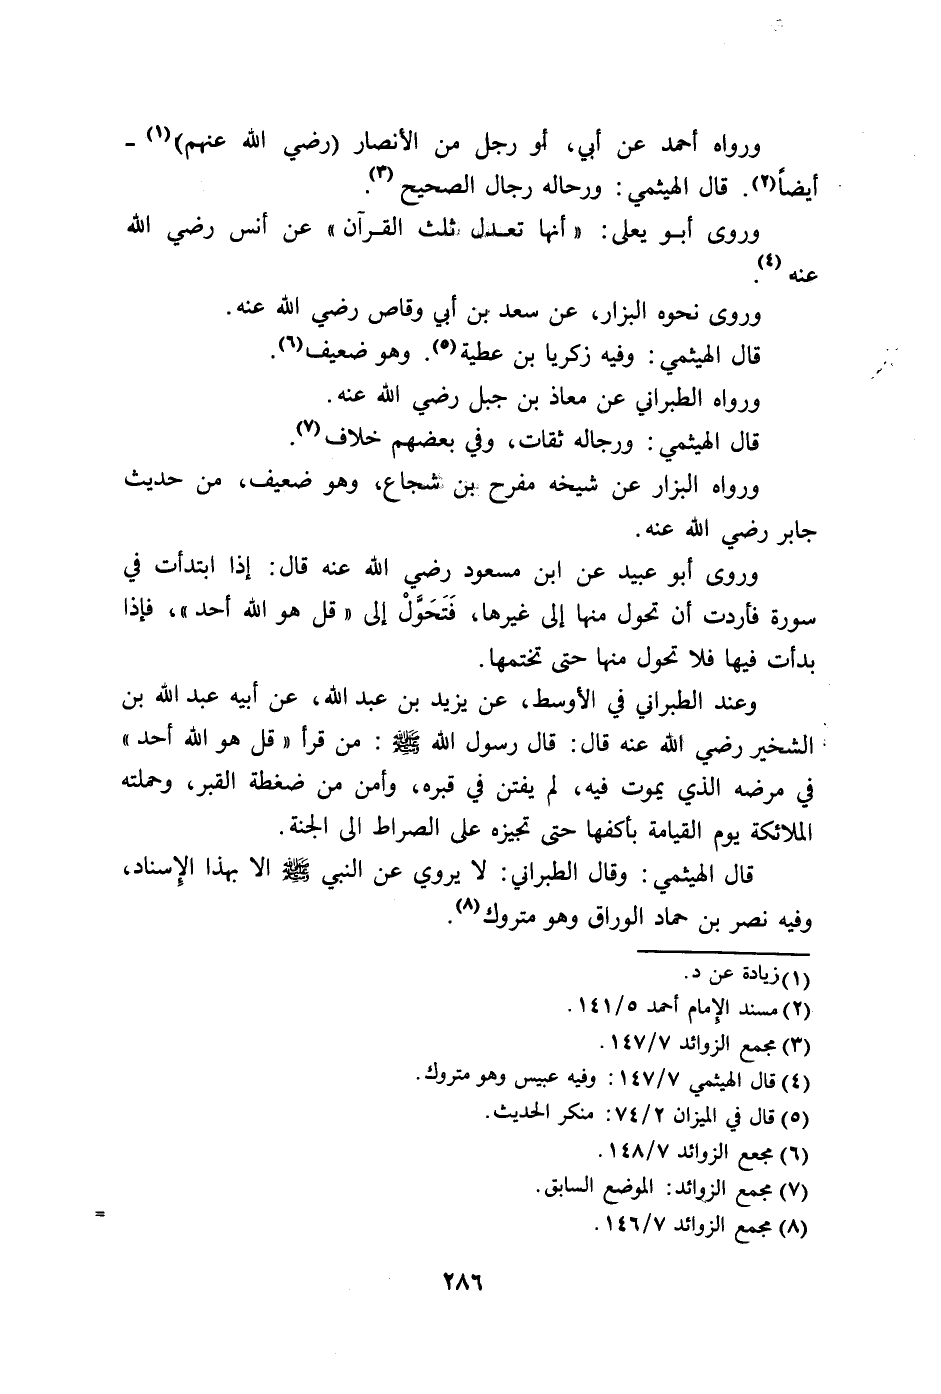 ورواه أحمد عن أبي، أو رجل من الأنصار (رضي الله عنهم)(١) -
أيضاً(٢). قال الهيثمي: ورحاله رجال الصحيح(٣).
وروى أبو يعلى: «أنها تعدل ثلث القرآن» عن أنس رضي الله
عنه(٤).
وروى نحوه البزار، عن سعد بن أبي وقاص رضي الله عنه.
قال الهيثمي: وفيه زكريا بن عطية(٥). وهو ضعيف(٦).
ورواه الطبراني عن معاذ بن جبل رضي الله عنه.
قال الهيثمي: ورجاله ثقات، وفي بعضهم خلاف(٧).
ورواه البزار عن شيخه مفرح بن شجاع، وهو ضعيف، من حديث
جابر رضي الله عنه.
وروى أبو عبيد عن ابن مسعود رضي الله عنه قال: إذا ابتدأت في
سورة فأردت أن تحول منها إلى غيرها، فَتَحَوَّلْ إلى «قل هو الله أحد»، فإذا
بدأت فيها فلا تحول منها حتى تختمها.
وعند الطبراني في الأوسط، عن يزيد بن عبد الله، عن أبيه عبد الله بن
الشخير رضي الله عنه قال: قال رسول الله ﷺ: من قرأ «قل هو الله أحد»
في مرضه الذي يموت فيه، لم يفتن في قبره، وأمن من ضغطة القبر، وحملته
الملائكة يوم القيامة بأكفها حتى تجيزه على الصراط الى الجنة.
قال الهيثمي: وقال الطبراني: لا يروي عن النبي ﷺ الا بهذا الإسناد،
وفيه نصر بن حماد الوراق وهو متروك(٨).
(١) زيادة عن د.
(٢) مسند الإمام أحمد ١٤١/٥.
(٣) مجمع الزوائد ١٤٧/٧.
(٤) قال الهيثمي ١٤٧/٧: وفيه عبيس وهو متروك.
(٥) قال في الميزان ٧٤/٢: منكر الحديث.
(٦) مجمع الزوائد ١٤٨/٧.
(٧) مجمع الزوائد: الموضع السابق.
(٨) مجمع الزوائد ١٤٦/٧.
=
٢٨٦